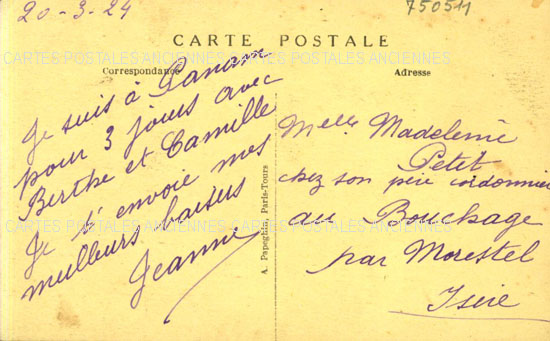 20-3-24
75054
CARTE POSTALE
CARTES POSTALES ANCIENNES CARTES POSTALES ANCIENNES CARTES
Correspondance
Adresse
Je suis à Panam
pour 3 jours avec
Berthe et Camille
Je t'envoie mes
meilleurs baisers
Jeanne
A. Papeghin, Paris-Tours
Melle Madeleine
Petit
chez son père cordonnier
au Bouchage
par Morestel
Isère
CARTES POSTALES ANCIENNES CARTES POSTALES ANCIENNES CARTES